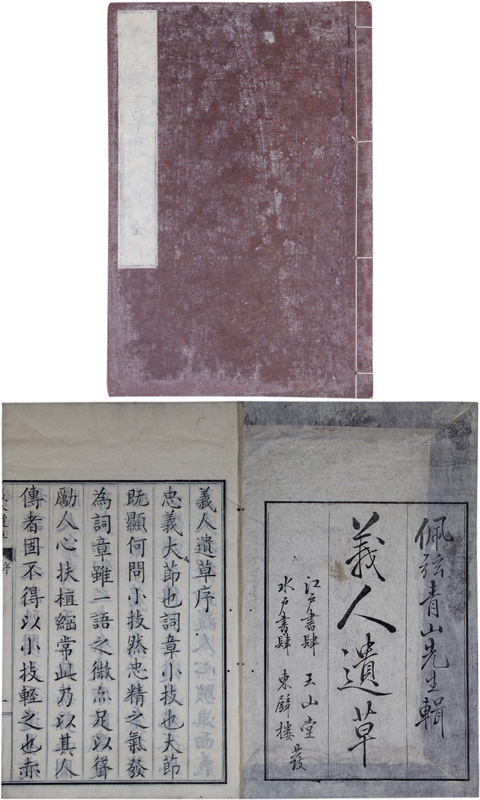 佩弦青山先生輯
義人遺草
江戸書肆 玉山堂
水戸書肆 東壁樓 發
義人遺草序
忠義大節也詞章小技也大節
既顯何問小技然忠精之氣發
為詞章雖一語之微亦足以聳
勵人心扶植經常此乃以其人
傳者固不得以小技輕之也赤
序